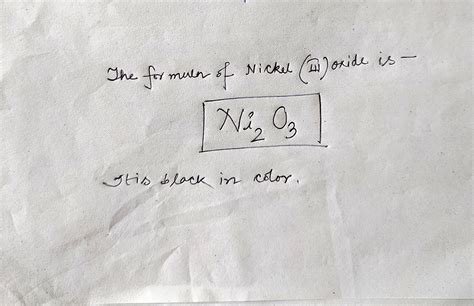 The formula of Nickel (III) oxide is —
Ni₂O₃
It is black in color.